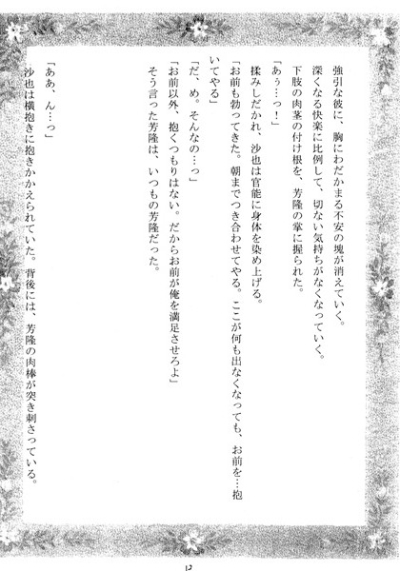 強引な彼に、胸にわだかまる不安の塊が消えていく。
深くなる快楽に比例して、切ない気持ちがなくなっていく。
下肢の肉茎の付け根を、芳隆の掌に握られた。
「あぅ…っ！」
揉みしだかれ、沙也は官能に身体を染め上げる。
「お前も勃ってきた。朝までつき合わせてやる。ここが何も出なくなっても、お前を…抱
いてやる」
「だ、め。そんなの…っ」
「お前以外、抱くつもりはない。だからお前が俺を満足させろよ」
そう言った芳隆は、いつもの芳隆だった。
「ああ、ん…っ」
沙也は横抱きに抱きかかえられていた。背後には、芳隆の肉棒が突き刺さっている。
12